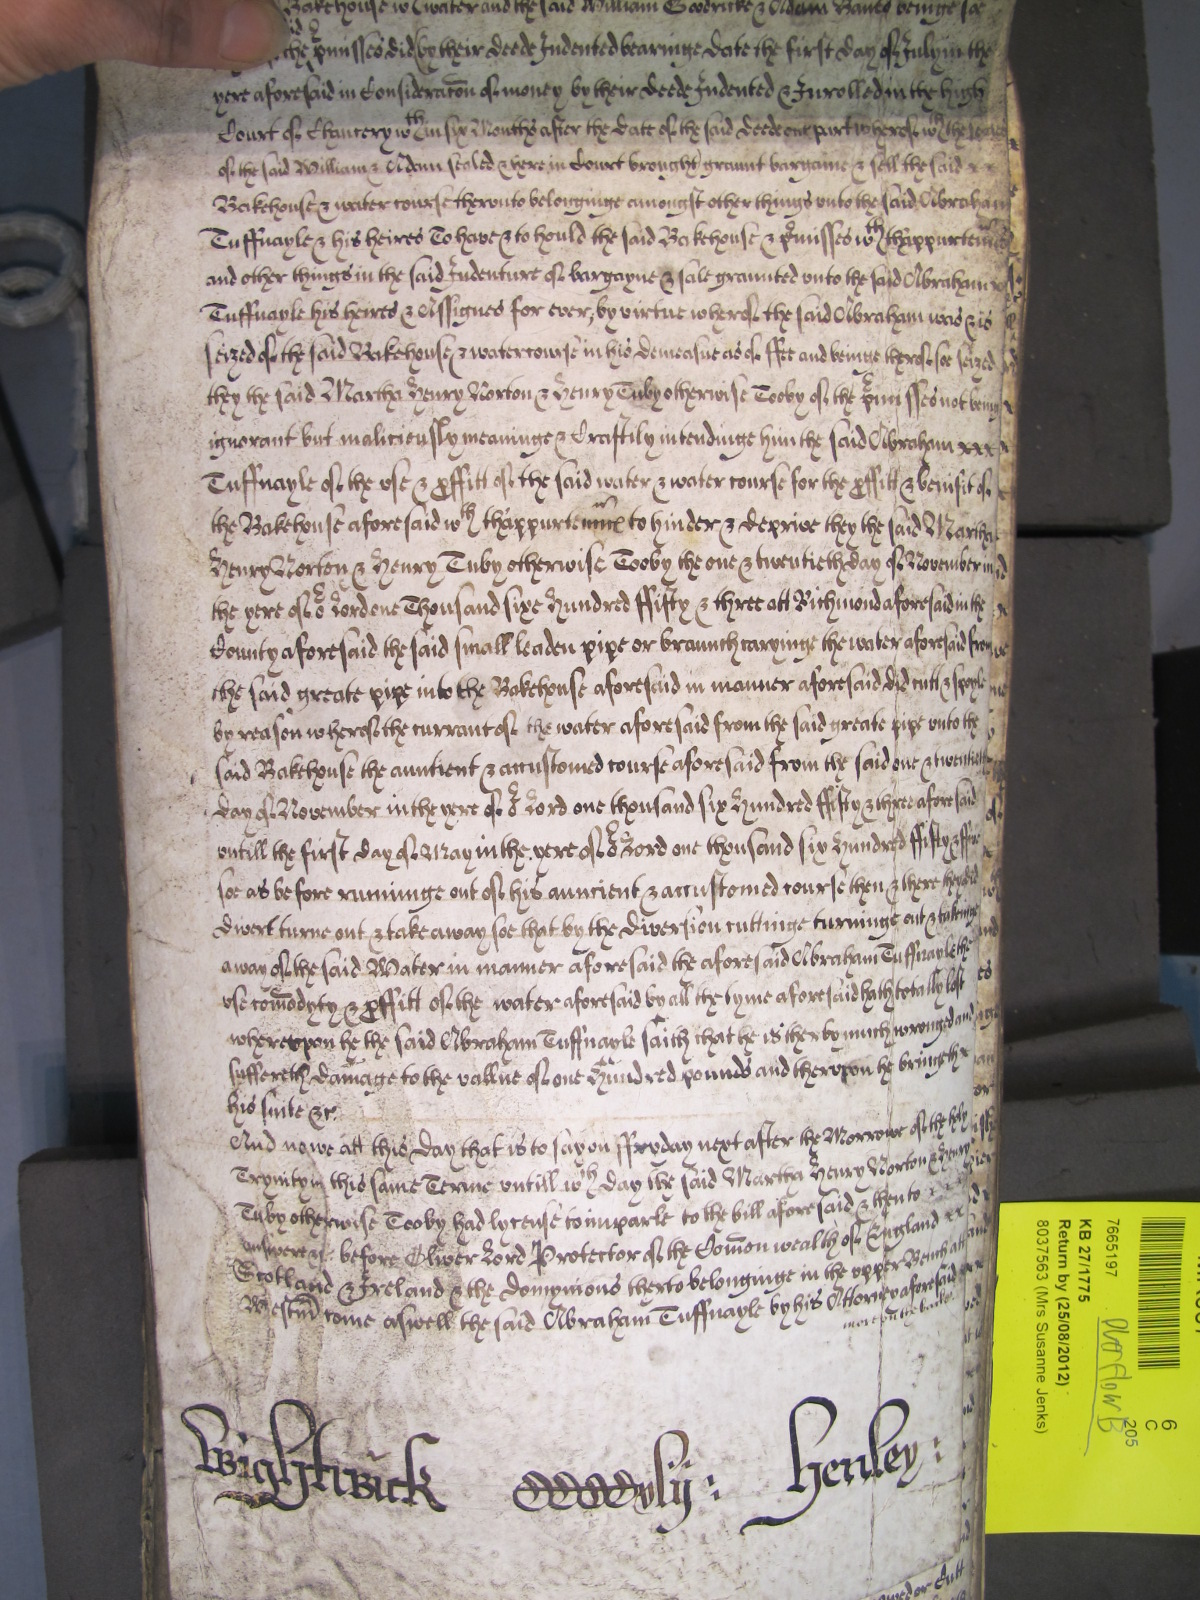 Bakehouse w water and the said William Goodricke & Adam Baines beinge soe
the pmisses did by their deede Indented bearinge date the first day of July in the
yere aforesaid in Consideracon of money by their deede Indented & Inrolled in the high
Court of Chancery wth in six Months after the date of the said deede one part whereof wth the seales
of the said William & Adam sealed & here in Court brought graunt bargaine & sell the said
Bakehouse & water course therunto belonginge amongst other things unto the said Abraham
Tuffnayle & his heires To have & to hould the said Bakehouse & pmisses wth thappurtennces
and other things in the said Indenture of bargayne & sale graunted unto the said Abraham
Tuffnayle his heires & Assignes for ever, by virtue whereof the said Abraham was & is
seized of the said Bakehouse & watercourse in his demeasne as of ffee and beinge therof soe seized
they the said Martha Henry Norton & Henry Tuby otherwise Tooby of the pmisses not being
ignorant but maliciously meaninge & Craftily intendinge him the said Abraham
Tuffnayle of the use & pffitt of the said water & water course for the pffitt & benifit of
the Bakehouse aforesaid wth thappurtennce to hinder & deprive they the said Martha
Henry Norton & Henry Tuby otherwise Tooby the one & twentieth day of November in
the yere of or Lord one Thousand sixe Hundred ffifty & three att Richmond aforesaid in the
County aforesaid the said small leaden pipe or braunch caryinge the water aforesaid from
the said greate pipe into the Bakehouse aforesaid in manner aforesaid did cutt & spoyle
by reason whereof the currant of the water aforesaid from the said greate pipe unto the
said Bakehouse the auntient & accustomed course aforesaid from the said one & twentieth
day of November in the yere of or Lord one thousand six Hundred ffifty & three aforesaid
untill the first day of May in the yere of or Lord one thousand six Hundred ffifty & ffive
soe as before runninge out of his auncient & accustomed course then & there they did
divert turne out & take away soe that by the diversion cuttinge turninge out & takinge
away of the said Water in manner aforesaid the aforesaid Abraham Tuffnayle the
use comodyty & pffitt of the water aforesaid by all the tyme aforesaid hath totally lost
whereupon he the said Abraham Tuffnayle saith that he is therby much wronged and
suffereth damage to the vallue of one Hundred pounds and therupon he bringeth
his suite &c.
And nowe att this day that is to say on ffryday next after the Morrowe of the holy
Trynity in this same Terme untill wch day the said Martha Henry Norton & Henry
Tuby otherwise Tooby had lycense to imparle to the bill aforesaid & then to
answere &c before Oliver Lord Protector of the Comon wealth of England
Scotland & Ireland & the domynions therto belonginge in the upper Bench att
Westmr come aswell the said Abraham Tuffnayle by his Attorney aforesaid
more on the backe
Wightwick Oddly: Henley:
7665197
KB 27/1775
Return by (25/08/2012)
8037563 (Mrs Susanne Jenks)
Overflow B
205
6
C